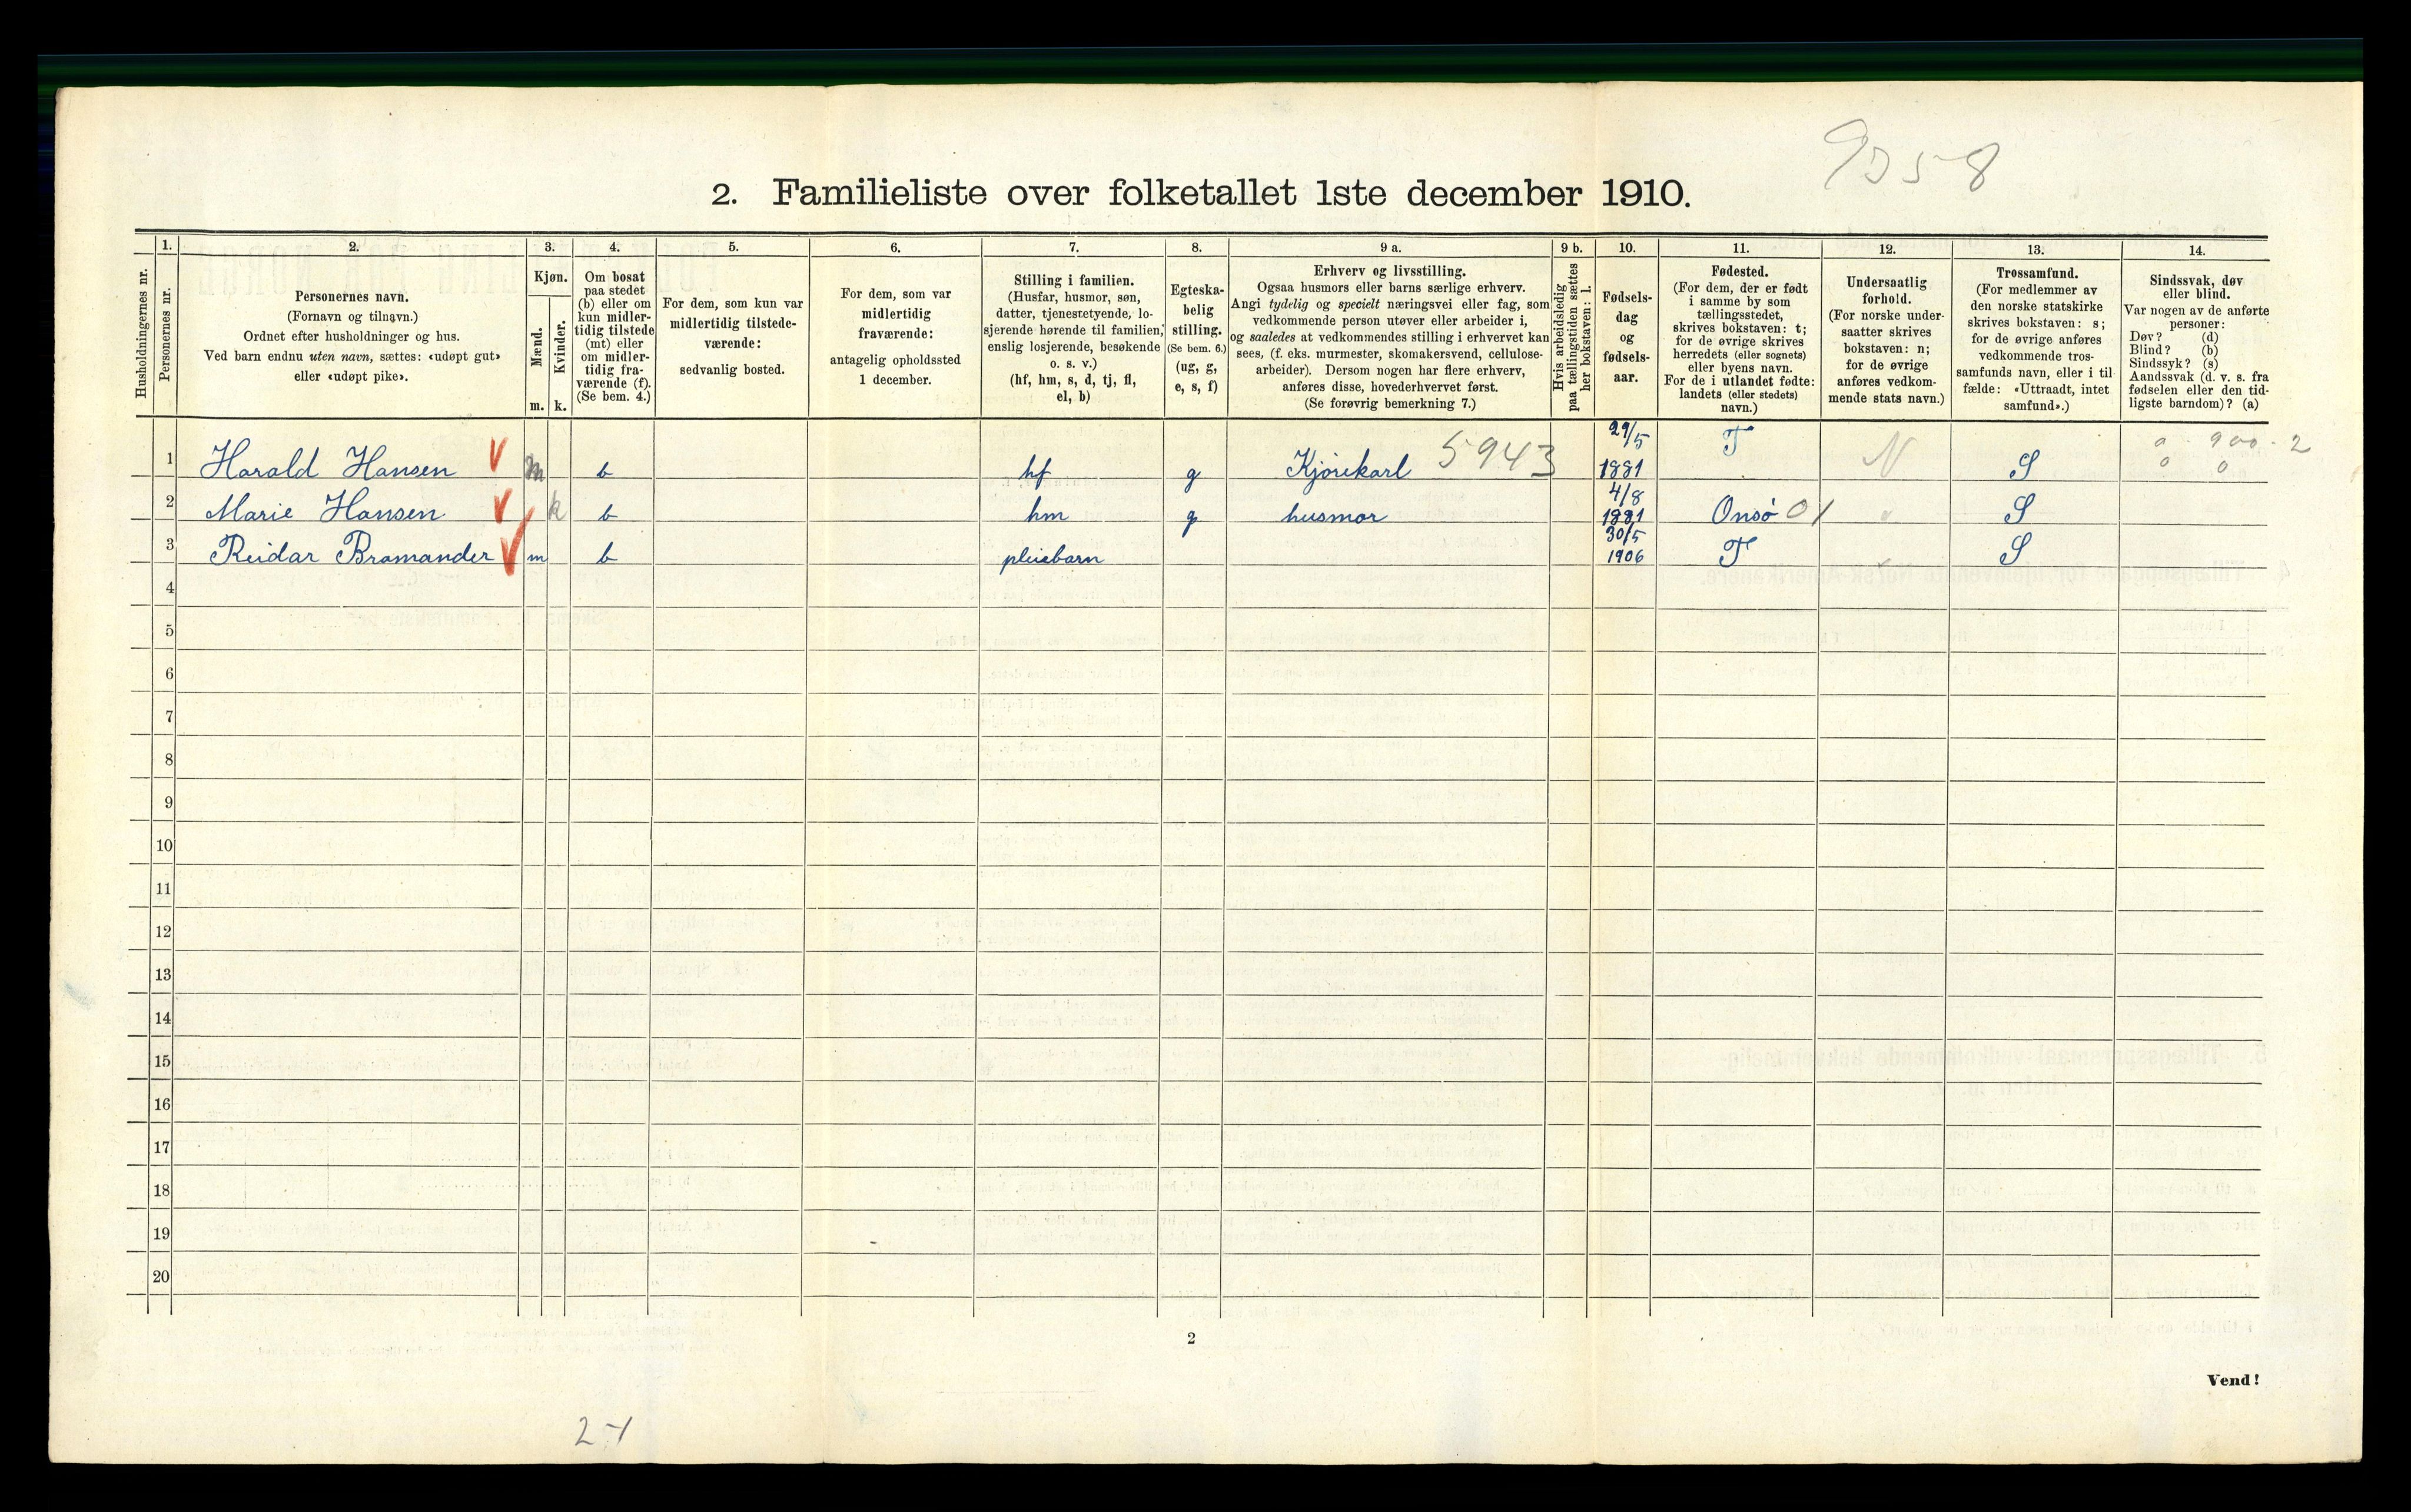 9358
2. Familieliste over folketallet 1ste december 1910.
Husholdningernes nr.
1. Personernes nr.
2. Personernes navn.
(Fornavn og tilnavn.)
Ordnet efter husholdninger og hus.
Ved barn endnu uten navn, sættes: «udøpt gut»
eller «udøpt pike».
3. Kjøn.
Mænd. m.
Kvinder. k.
4. Om bosat
paa stedet
(b) eller om
kun midler-
tidig tilstede
(mt) eller
om midler-
tidig fra-
værende (f).
(Se bem. 4.)
5. For dem, som kun var
midlertidig tilstede-
værende:
sedvanlig bosted.
6. For dem, som var
midlertidig
fraværende:
antagelig opholdssted
1 december.
7. Stilling i familien.
(Husfar, husmor, søn,
datter, tjenestetyende, lo-
sjerende hørende til familien,
enslig losjerende, besøkende
o. s. v.)
(hf, hm, s, d, tj, fl,
el, b)
8. Egteska-
belig
stilling.
(Se bem. 6.)
(ug, g,
e, s, f)
9 a. Erhverv og livsstilling.
Ogsaa husmors eller barns særlige erhverv.
Angi tydelig og specielt næringsvei eller fag, som
vedkommende person utøver eller arbeider i,
og saaledes at vedkommendes stilling i erhvervet kan
sees, (f. eks. murmester, skomakersvend, cellulose-
arbeider). Dersom nogen har flere erhverv,
anføres disse, hovederhvervet først.
(Se forøvrig bemerkning 7.)
9 b. Hvis arbeidsledig
paa tællingstiden sættes
her bokstaven: l.
10. Fødsels-
dag
og
fødsels-
aar.
11. Fødested.
(For dem, der er født
i samme by som
tællingsstedet,
skrives bokstaven: t;
for de øvrige skrives
herredets (eller sognets)
eller byens navn.
For de i utlandet fødte:
landets (eller stedets)
navn.)
12. Undersaatlig
forhold.
(For norske under-
saatter skrives
bokstaven: n;
for de øvrige
anføres vedkom-
mende stats navn.)
13. Trossamfund.
(For medlemmer av
den norske statskirke
skrives bokstaven: s;
for de øvrige anføres
vedkommende tros-
samfunds navn, eller i til-
fælde: «Uttraadt, intet
samfund».)
14. Sindssvak, døv
eller blind.
Var nogen av de anførte
personer:
Døv? (d)
Blind? (b)
Sindssyk? (s)
Aandssvak (d. v. s. fra
fødselen eller den tid-
ligste barndom)? (a)
1 Harald Hansen m b hf g Kjørekarl 5943 29/5 1881 T N S 0 - 900 - 2 0 0
2 Marie Hansen k b hm g husmor 4/8 1881 Onsø 01 " S
3 Reidar Bramander m b pleiebarn 30/5 1906 T " S
4
5
6
7
8
9
10
11
12
13
14
15
16
17
18
19
20
2
Vend!
2-1